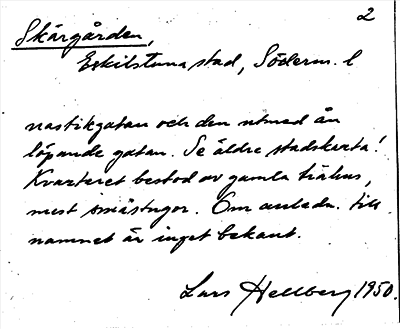 2
Skärgården,
Eskilstuna stad, Söderm. l
nastikgatan och den utmed ån
löpande gatan. Se äldre stadskarta!
Kvarteret bestod av gamla trähus,
mest småstugor. Om anledn. till
namnet är inget bekant.
Lars Hellberg 1950.